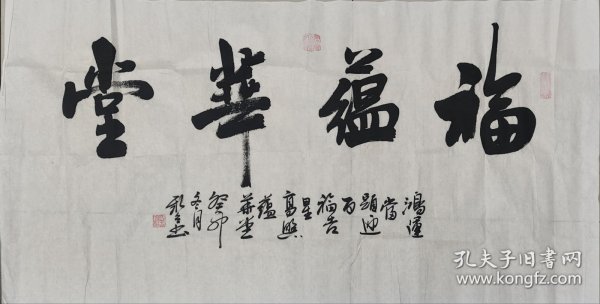 福蕴華堂
鴻運
當
頭迎
百
福吉
星
高照
蕴
華堂
癸卯
冬月
孔夫子旧书网
www.kongfz.com